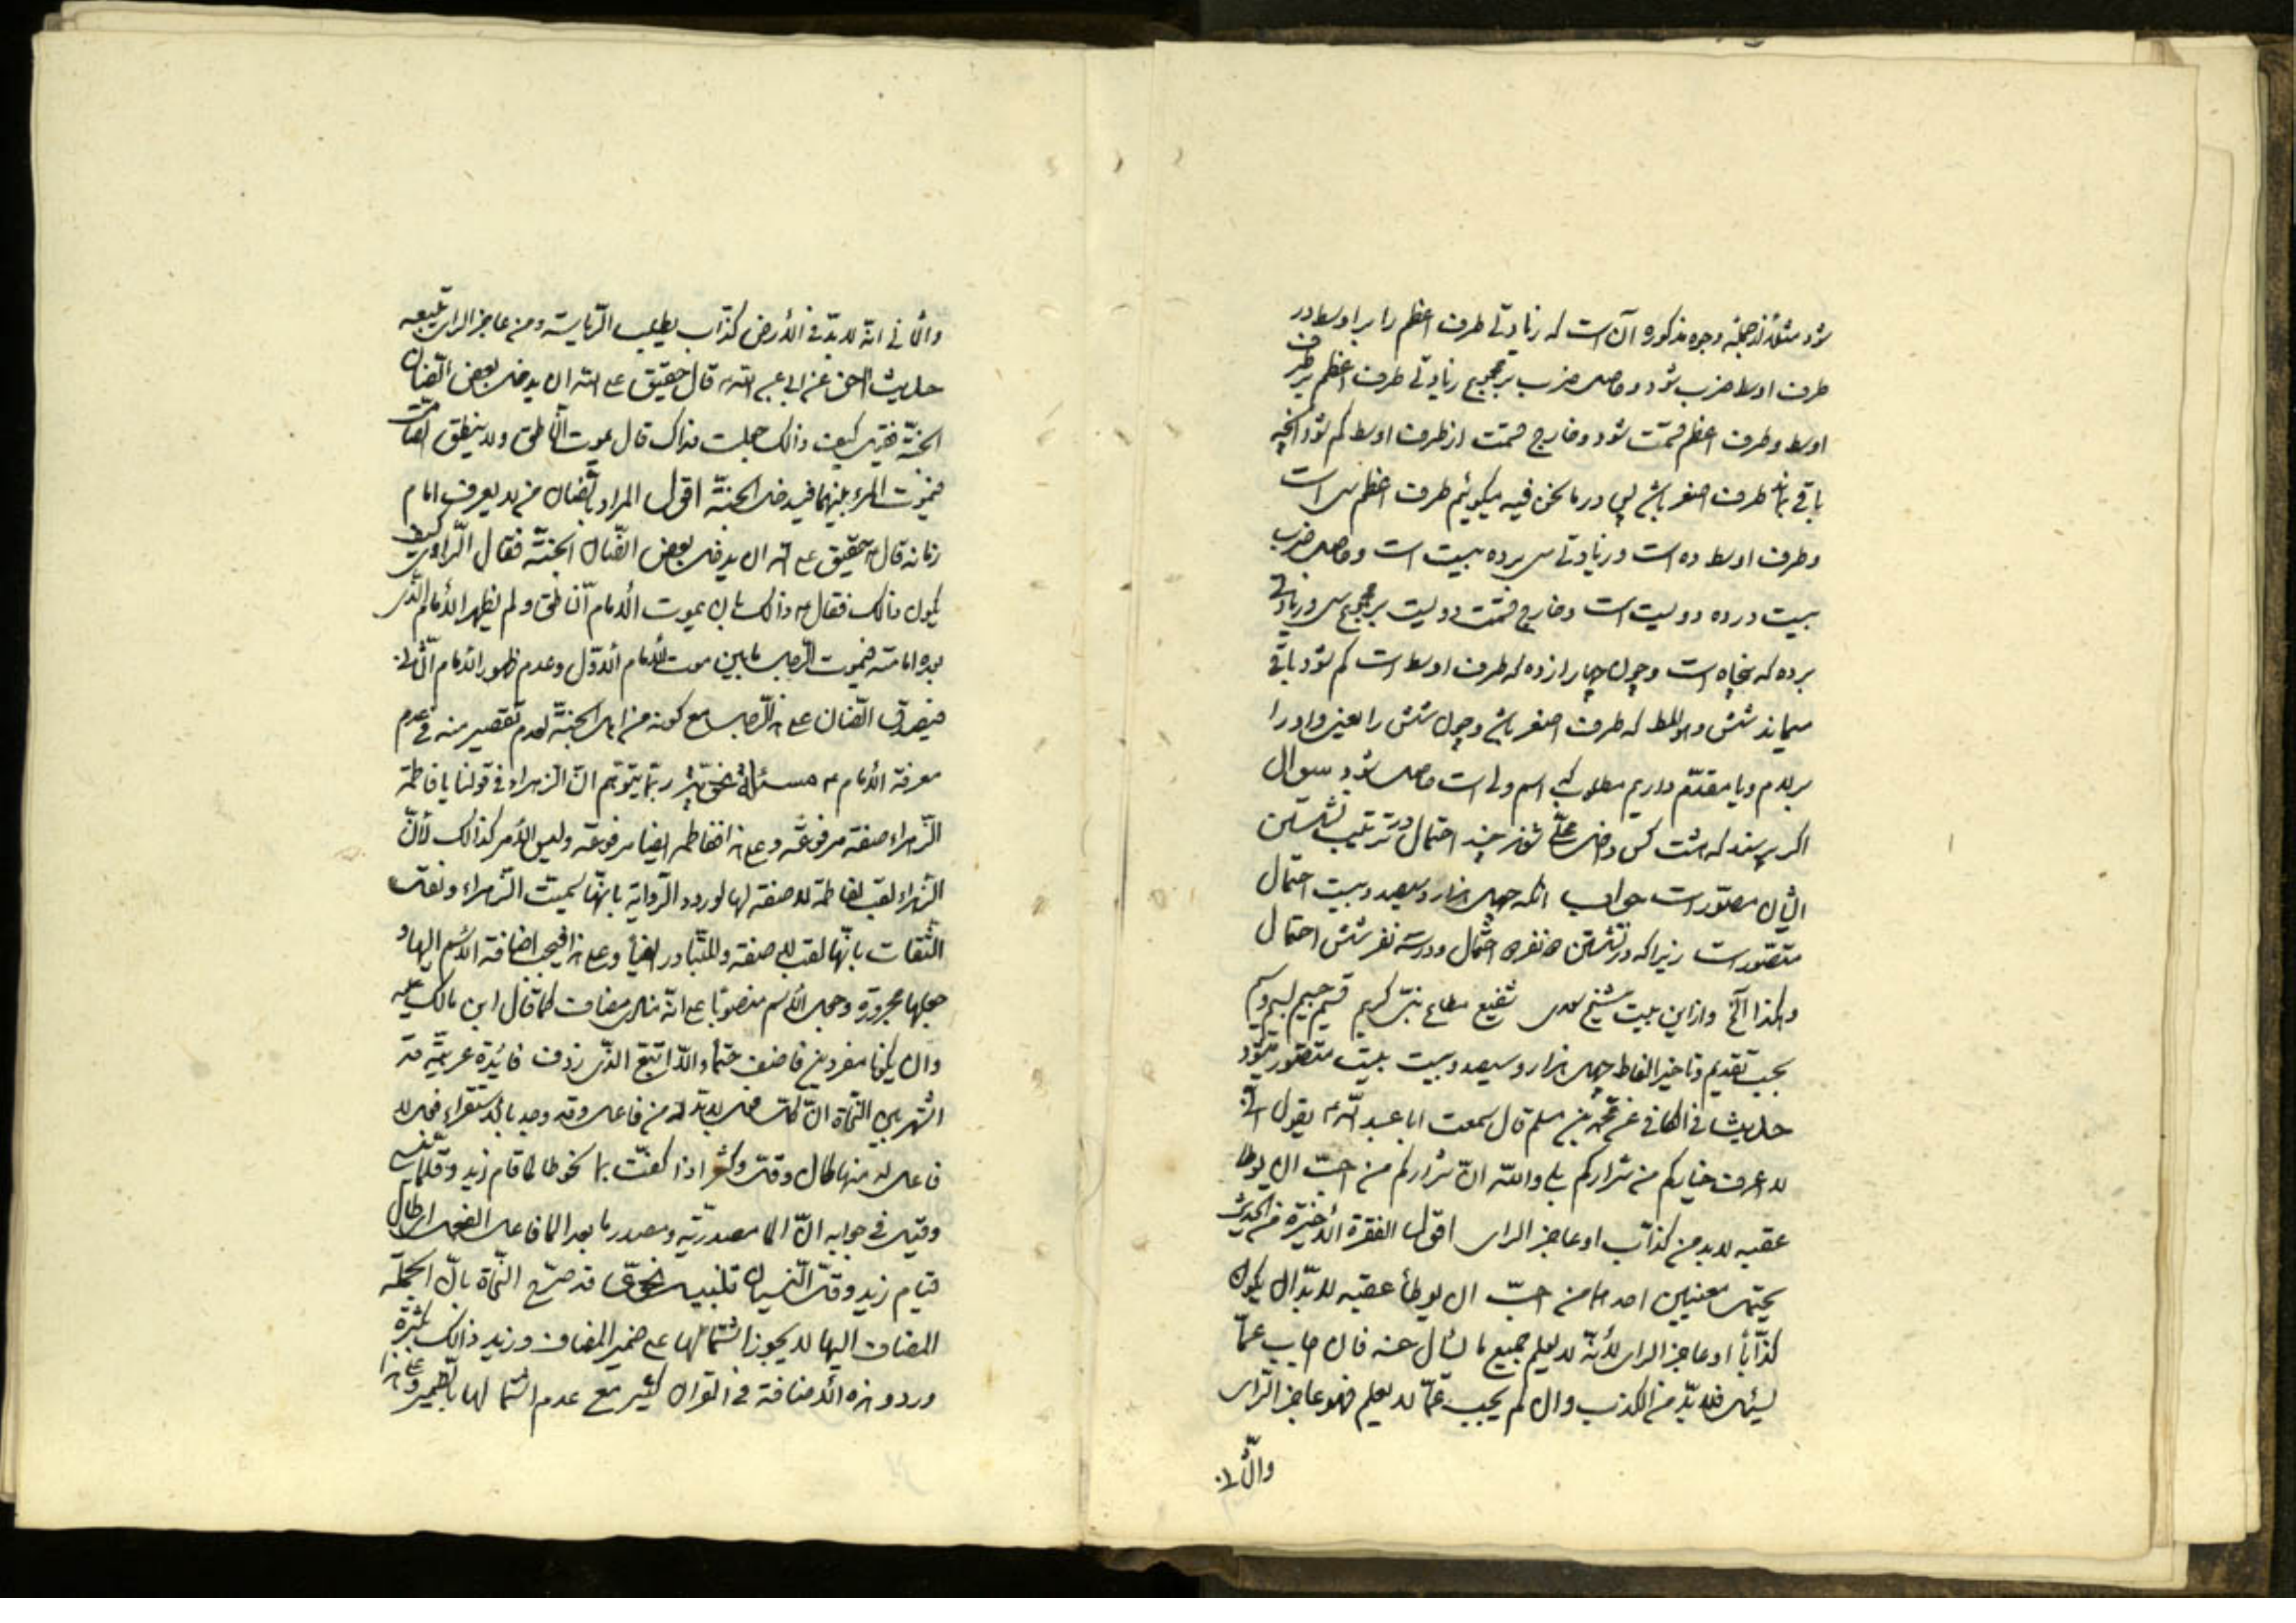 شود مثلا از جمله وجوه مذکوره آن است که زیادتی طرف اعظم را بر اوسط در
طرف اوسط ضرب شود و حاصل ضرب بر مجموع زیادتی طرف اعظم بر طرف
اوسط و طرف اعظم قسمت شود و خارج قسمت از طرف اوسط کم شود آنچه
باقی ماند طرف اصغر باشد پس در ما نحن فیه میگوئیم طرف اعظم سی است
و طرف اوسط ده است و زیادتی سی بر ده بیست است و حاصل ضرب
بیست در ده دویست است و خارج قسمت دویست بر مجموع سی و زیادتی
بر ده که پنجاه است و چون چهار از ده که طرف اوسط است کم شود باقی
میماند شش که طرف اصغر باشد و چون شش را یعنی واو را
بر لام و یا مقدم داریم مطلوب که اسم ولی است حاصل شود سوال
اگر پرسند که هشت کس داخل شوند چند احتمال در ترتیب نشستن
ایشان متصور است جواب آنکه چهل هزار و سیصد و بیست احتمال
متصور است زیرا که در نشستن نفر احتمال و در سه نفر شش احتمال
و هکذا الخ و از این بیت شیخ سعدی شفیع مطاع نبی کریم قسیم جسیم بسیم وسیم
بحسب تقدیم و تاخیر الفاظ چهل هزار و سیصد و بیست بیت متصور میشود
حدیث فی الکافی عن محمد بن مسلم قال سمعت ابا عبد الله ع یقول اترانی
لا اعرف خیارکم من شرارکم بلی والله ان شرارکم من احب ان یوطا
عقبه لابد من کذاب او عاجز الرای اقول الفقرة الاخیرة من الحدیث
یحتمل معنیین احدهما من احب ان یوطأ عقبه لابد ان یکون
کذابا او عاجز الرای لانه لا یعلم جمیع ما یسأل عنه فان اجاب عما
یسئل فلابد من الکذب وان لم یجب عما لا یعلم فهو عاجز الرای
والثانی
والثانی انه لابد فی الارض کذاب یطلب الریاسة ومن عاجز الرای یتبعه
حدیث عن ابی عبد الله ع قال حقیق علی الله ان یدخل بعض الضلال
الجنة کیف ذلک جعلت فداک قال یموت الناطق ولا ینطق الصامت
فیموت المرء بینهما فیدخل الجنة اقول المراد بالضلال من لا یعرف امام
زمانه قال ع حقیق علی الله ان یدخل بعض الضلال الجنة فقال الراوی کیف
یکون ذلک فقال ع ذلک بان یموت الامام الناطق ولم یظهر الامام الذی
بعده امامته فیموت الرجل ما بین موت الامام الاول وعدم ظهور الامام الثانی
فیصدق الضلال علی هذا الرجل مع کونه من اهل الجنة لعدم تقصیر منه فی عدم
معرفة الامام ع مسئلة نحویة ربما یتوهم ان الزهراء فی قولنا یا فاطمة
الزهراء صفة مرفوعة وعلی هذا ففاطمة ایضا مرفوعة ولیس الامر کذلک لأن
الزهراء لقب لفاطمة لا صفة لها لورود الروایة بانها سمیت الزهراء ونقل
الثقات بانها لقب لا صفة وللتبادر ایضا وعلی هذا فیجب اضافة الاسم الیها و
جعلها مجرورة وجعل الاسم منصوبا علی انه منادی مضاف کما قال ابن مالک
وان یکونا مفردین فاضف حتما والا اتبع الذی ردف فائدة عربیة قد
اشتهر بین النحاة ان کل فعل لابد له من فاعل وقد وجد بالاستقراء فعل لا
فاعل له منها طال وقل وکثر اذا کفت بما نحو طالما قام زید وقلما
وقیل فی جوابه ان ما مصدریة ومصدر ما بعد ما فاعل الفعل ای طال
قیام زید وقل النسیان تنبیه نحوی قد صرح النحاة بان الجملة
المضاف الیها لا یجوز اشتمالها علی ضمیر المضاف وزید ذلک
ورود هذه الاضافة فی القرآن کثیر مع عدم اشتمالها بالضمیر وعلی هذا